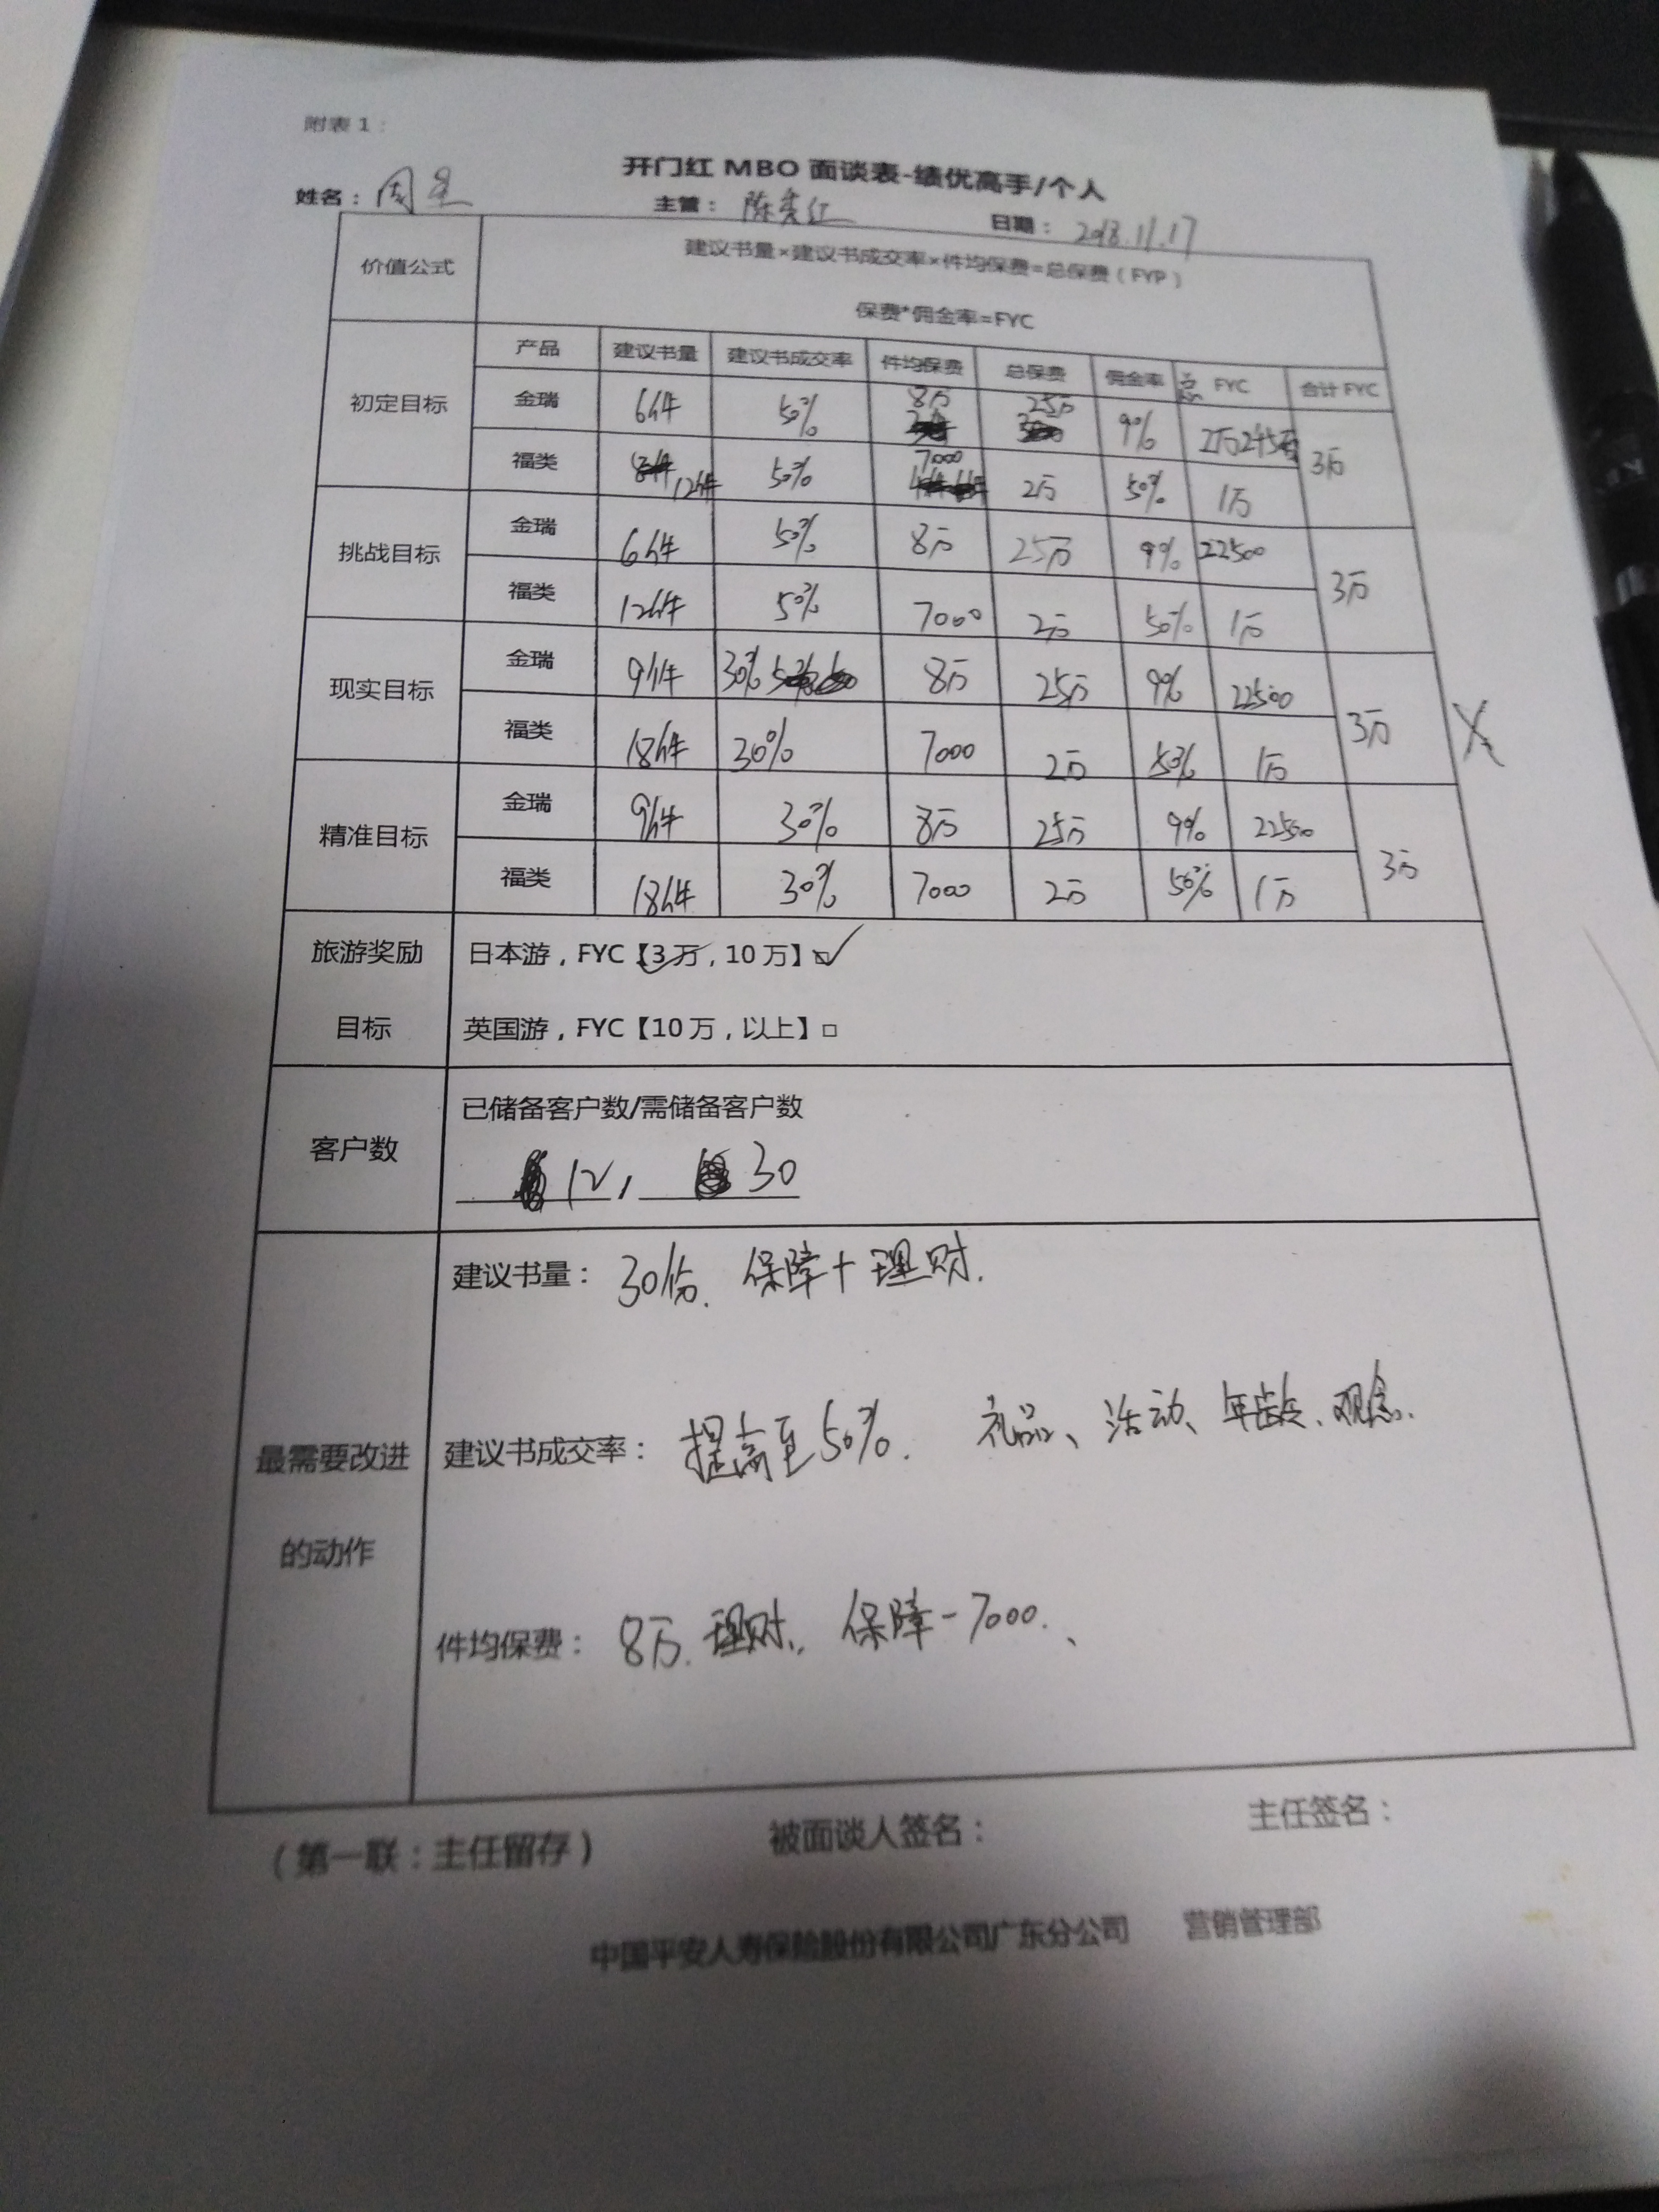 附表 1：
开门红 MBO 面谈表-绩优高手/个人
姓名：周星 主管：陈秀红 日期：2018.11.17
价值公式
建议书量×建议书成交率×件均保费=总保费（FYP）
保费*佣金率=FYC
产品 建议书量 建议书成交率 件均保费 总保费 佣金率 FYC 合计 FYC
初定目标
金瑞 6件 50% 8万 25万 9%
福类 12件 50% 7000 2万 50% 1万
3万
挑战目标
金瑞 6件 50% 8万 25万 9% 22500
福类 12件 50% 7000 2万 50% 1万
3万
现实目标
金瑞 9件 30% 8万 25万 9% 22500
福类 18件 30% 7000 2万 50% 1万
3万
精准目标
金瑞 9件 30% 8万 25万 9% 22500
福类 18件 30% 7000 2万 50% 1万
3万
旅游奖励
目标
日本游，FYC【3 万，10 万】☑
英国游，FYC【10 万，以上】□
客户数
已储备客户数/需储备客户数
12 / 30
最需要改进
的动作
建议书量：30份. 保障+理财.
建议书成交率：提高至50%. 礼品、活动、年龄、观念.
件均保费：8万.理财.. 保障-7000.、
（第一联：主任留存） 被面谈人签名： 主任签名：
中国平安人寿保险股份有限公司广东分公司 营销管理部